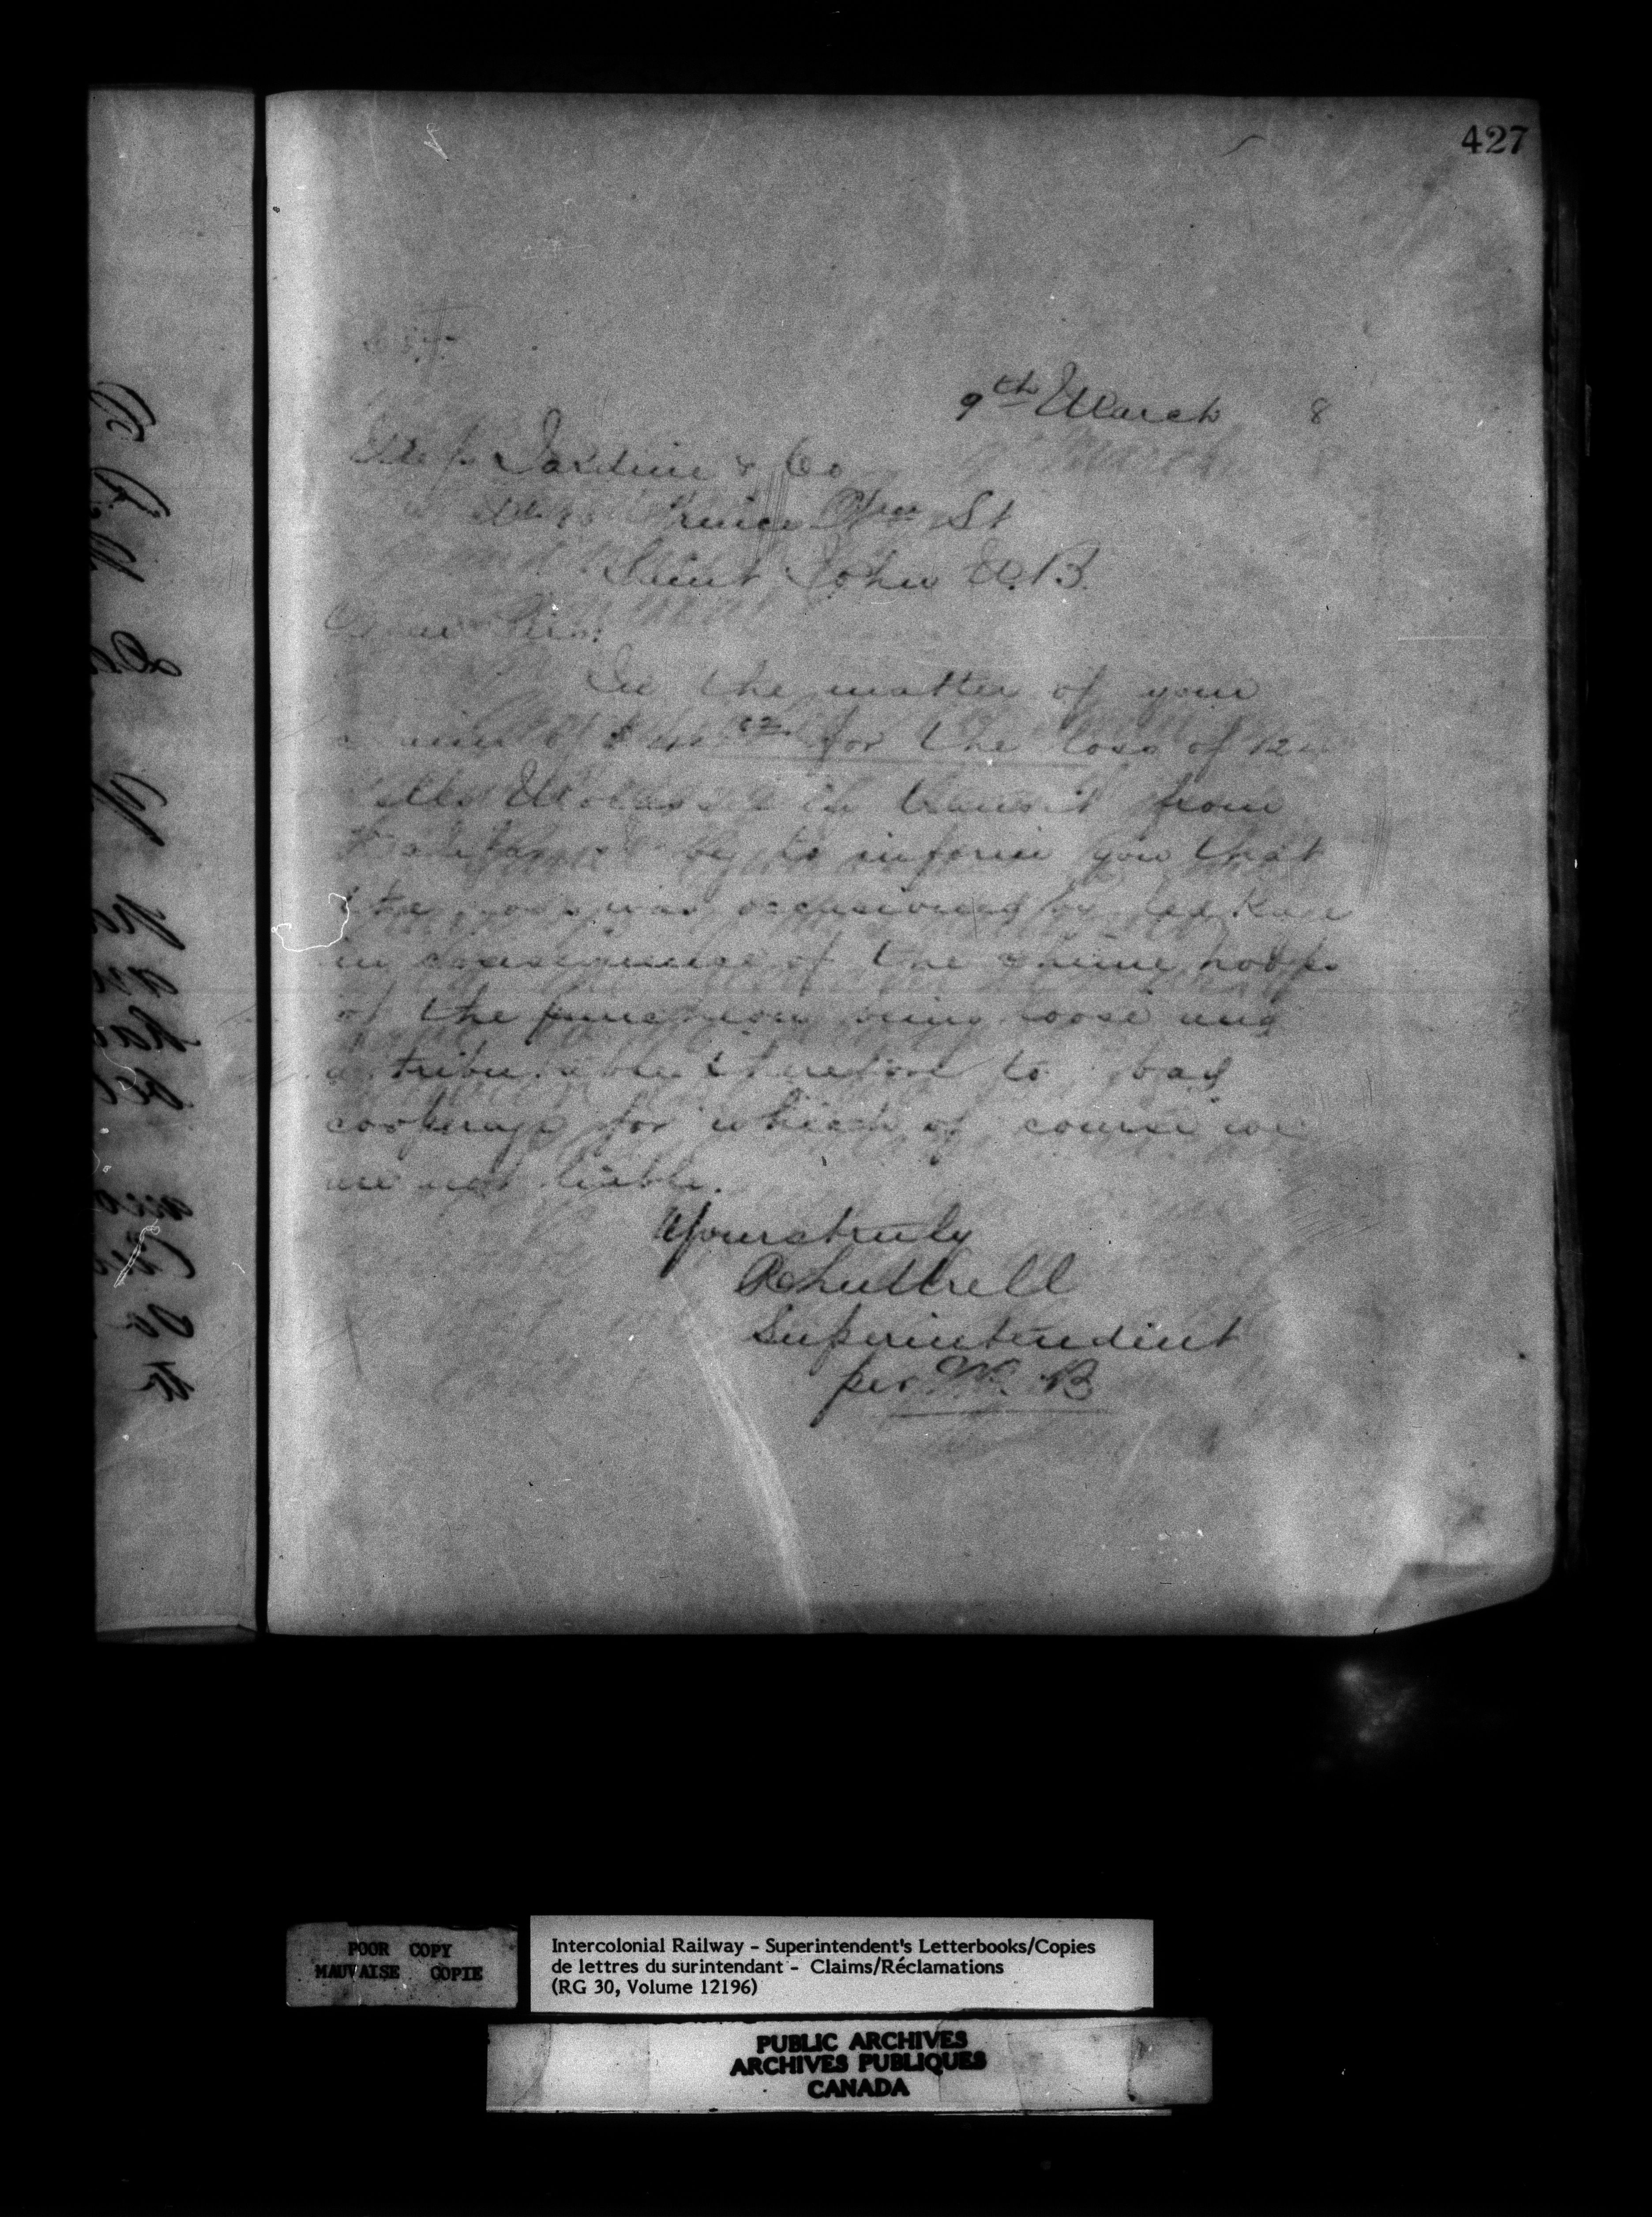 427
9th March 8
Messrs Jardine & Co
Prince Wm St
Saint John N.B.
Dear Sirs:
In the matter of your
claim of $ for the loss of
Molasses in transit from
Halifax I beg to inform you that
the loss was occasioned by leakage
in consequence of the chime hoops
of the puncheon being loose and
attributable therefore to bad
cooperage for which of course we
are not liable.
Yours truly
Luttrell
Superintendent
per W. B
POOR COPY
MAUVAISE COPIE
Intercolonial Railway - Superintendent's Letterbooks/Copies
de lettres du surintendant - Claims/Réclamations
(RG 30, Volume 12196)
PUBLIC ARCHIVES
ARCHIVES PUBLIQUES
CANADA